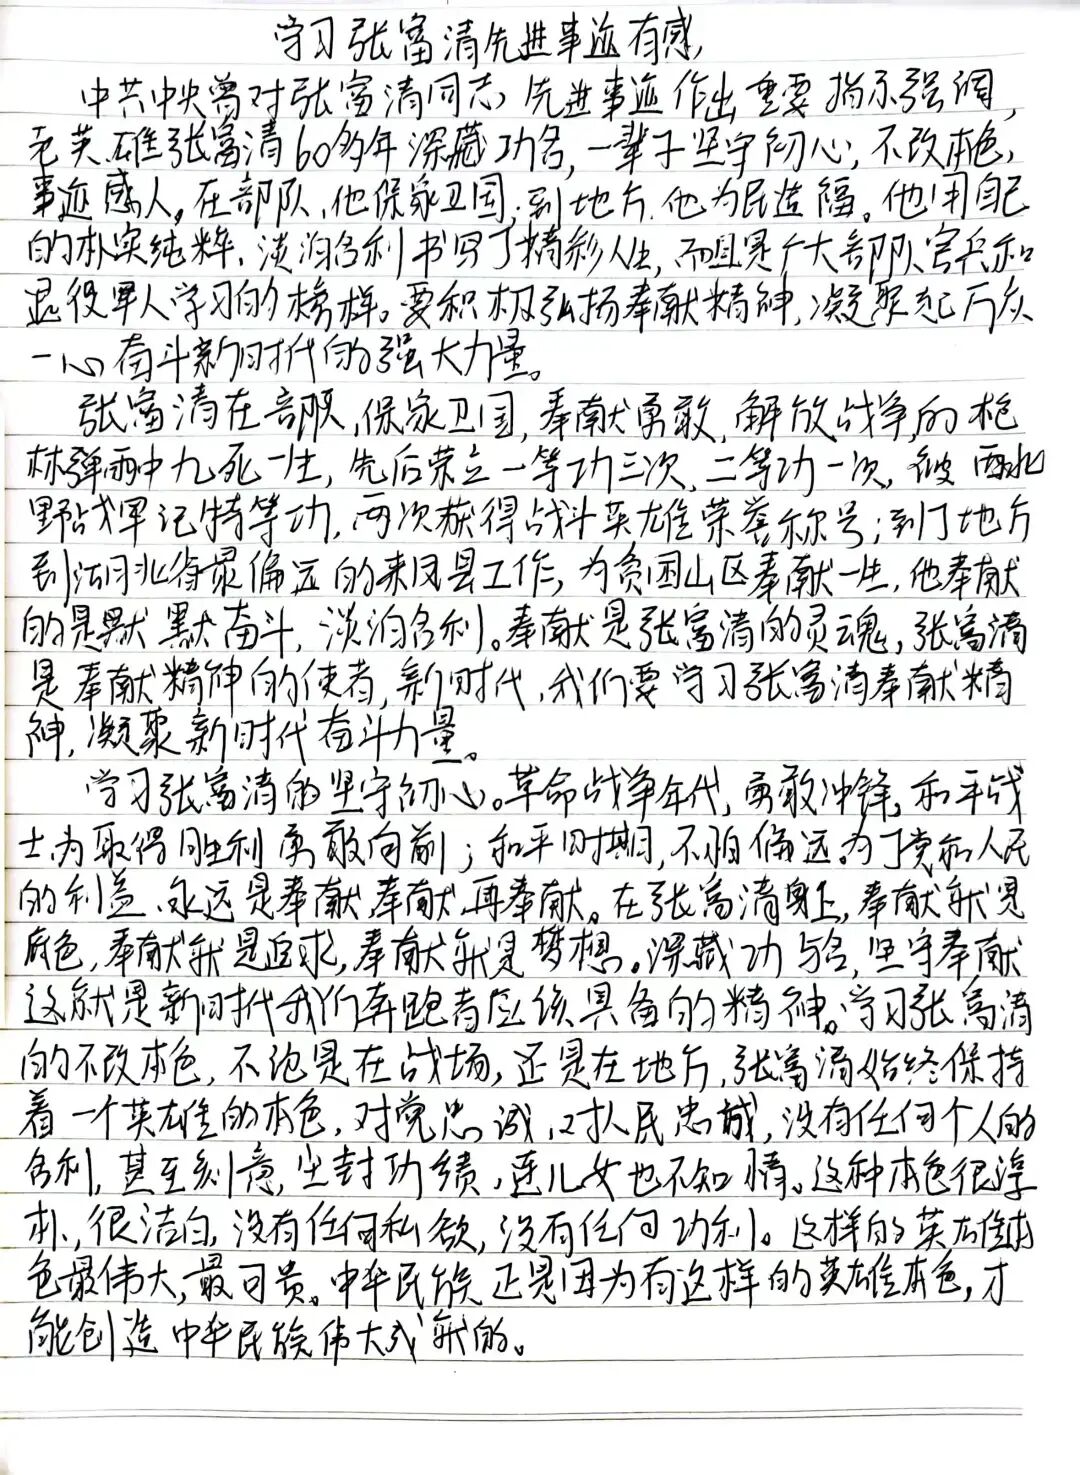 学习张富清先进事迹有感
中共中央曾对张富清同志先进事迹作出重要指示强调,
老英雄张富清60多年深藏功名,一辈子坚守初心,不改本色,
事迹感人。在部队,他保家卫国;到地方,他为民造福。他用自己
的朴实纯粹、淡泊名利书写了精彩人生,而且是广大部队官兵和
退役军人学习的榜样。要积极弘扬奉献精神,凝聚起万众
一心奋斗新时代的强大力量。
张富清在部队,保家卫国,奉献勇敢,解放战争的枪
林弹雨中九死一生,先后荣立一等功三次,二等功一次,被西北
野战军记特等功,两次获得战斗英雄荣誉称号;到了地方
到湖北省最偏远的来凤县工作,为贫困山区奉献一生,他奉献
的是默默奋斗,淡泊名利。奉献是张富清的灵魂,张富清
是奉献精神的使者,新时代,我们要学习张富清奉献精
神,凝聚新时代奋斗力量。
学习张富清的坚守初心。革命战争年代,勇敢冲锋,和平战
士为取得胜利勇敢向前;和平时期,不怕偏远。为了党和人民
的利益、永远是奉献,奉献,再奉献。在张富清身上,奉献就是
底色,奉献就是追求,奉献就是梦想。深藏功与名,坚守奉献
这就是新时代我们奔跑者应该具备的精神。学习张富清
的不改本色,不论是在战场,还是在地方,张富清始终保持
着一个英雄的本色,对党忠诚,对人民忠诚,没有任何个人的
名利,甚至刻意尘封功绩,连儿女也不知情。这种本色很淳
朴,很洁白,没有任何私欲,没有任何功利。这样的英雄本
色最伟大,最可贵。中华民族正是因为有这样的英雄本色,才
能创造中华民族伟大成就的。